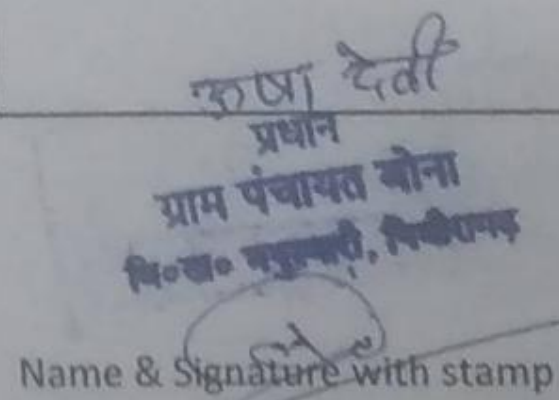 ऊषा देवी
प्रधान
ग्राम पंचायत बोना
वि०ख० मुनस्यारी, पिथौरागढ़
Name & Signature with stamp